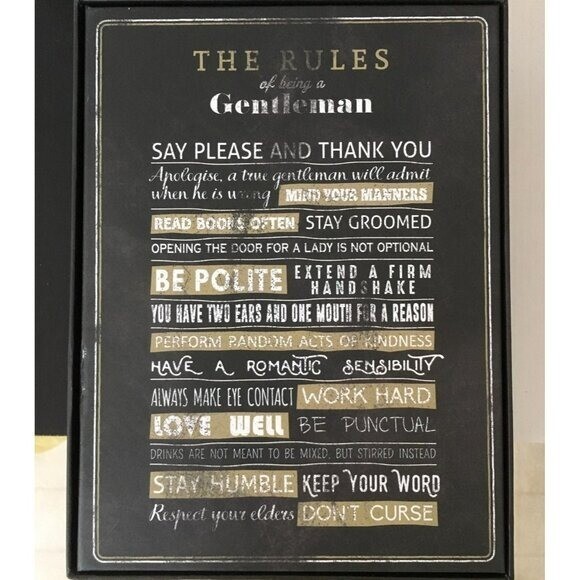 THE RULES
of being a
Gentleman
SAY PLEASE AND THANK YOU
Apologise, a true gentleman will admit
when he is wrong MIND YOUR MANNERS
READ BOOKS OFTEN STAY GROOMED
OPENING THE DOOR FOR A LADY IS NOT OPTIONAL
BE POLITE EXTEND A FIRM
HANDSHAKE
YOU HAVE TWO EARS AND ONE MOUTH FOR A REASON
PERFORM RANDOM ACTS OF KINDNESS
HAVE A ROMANTIC SENSIBILITY
ALWAYS MAKE EYE CONTACT WORK HARD
LOVE WELL BE PUNCTUAL
DRINKS ARE NOT MEANT TO BE MIXED, BUT STIRRED INSTEAD
STAY HUMBLE KEEP YOUR WORD
Respect your elders DON'T CURSE